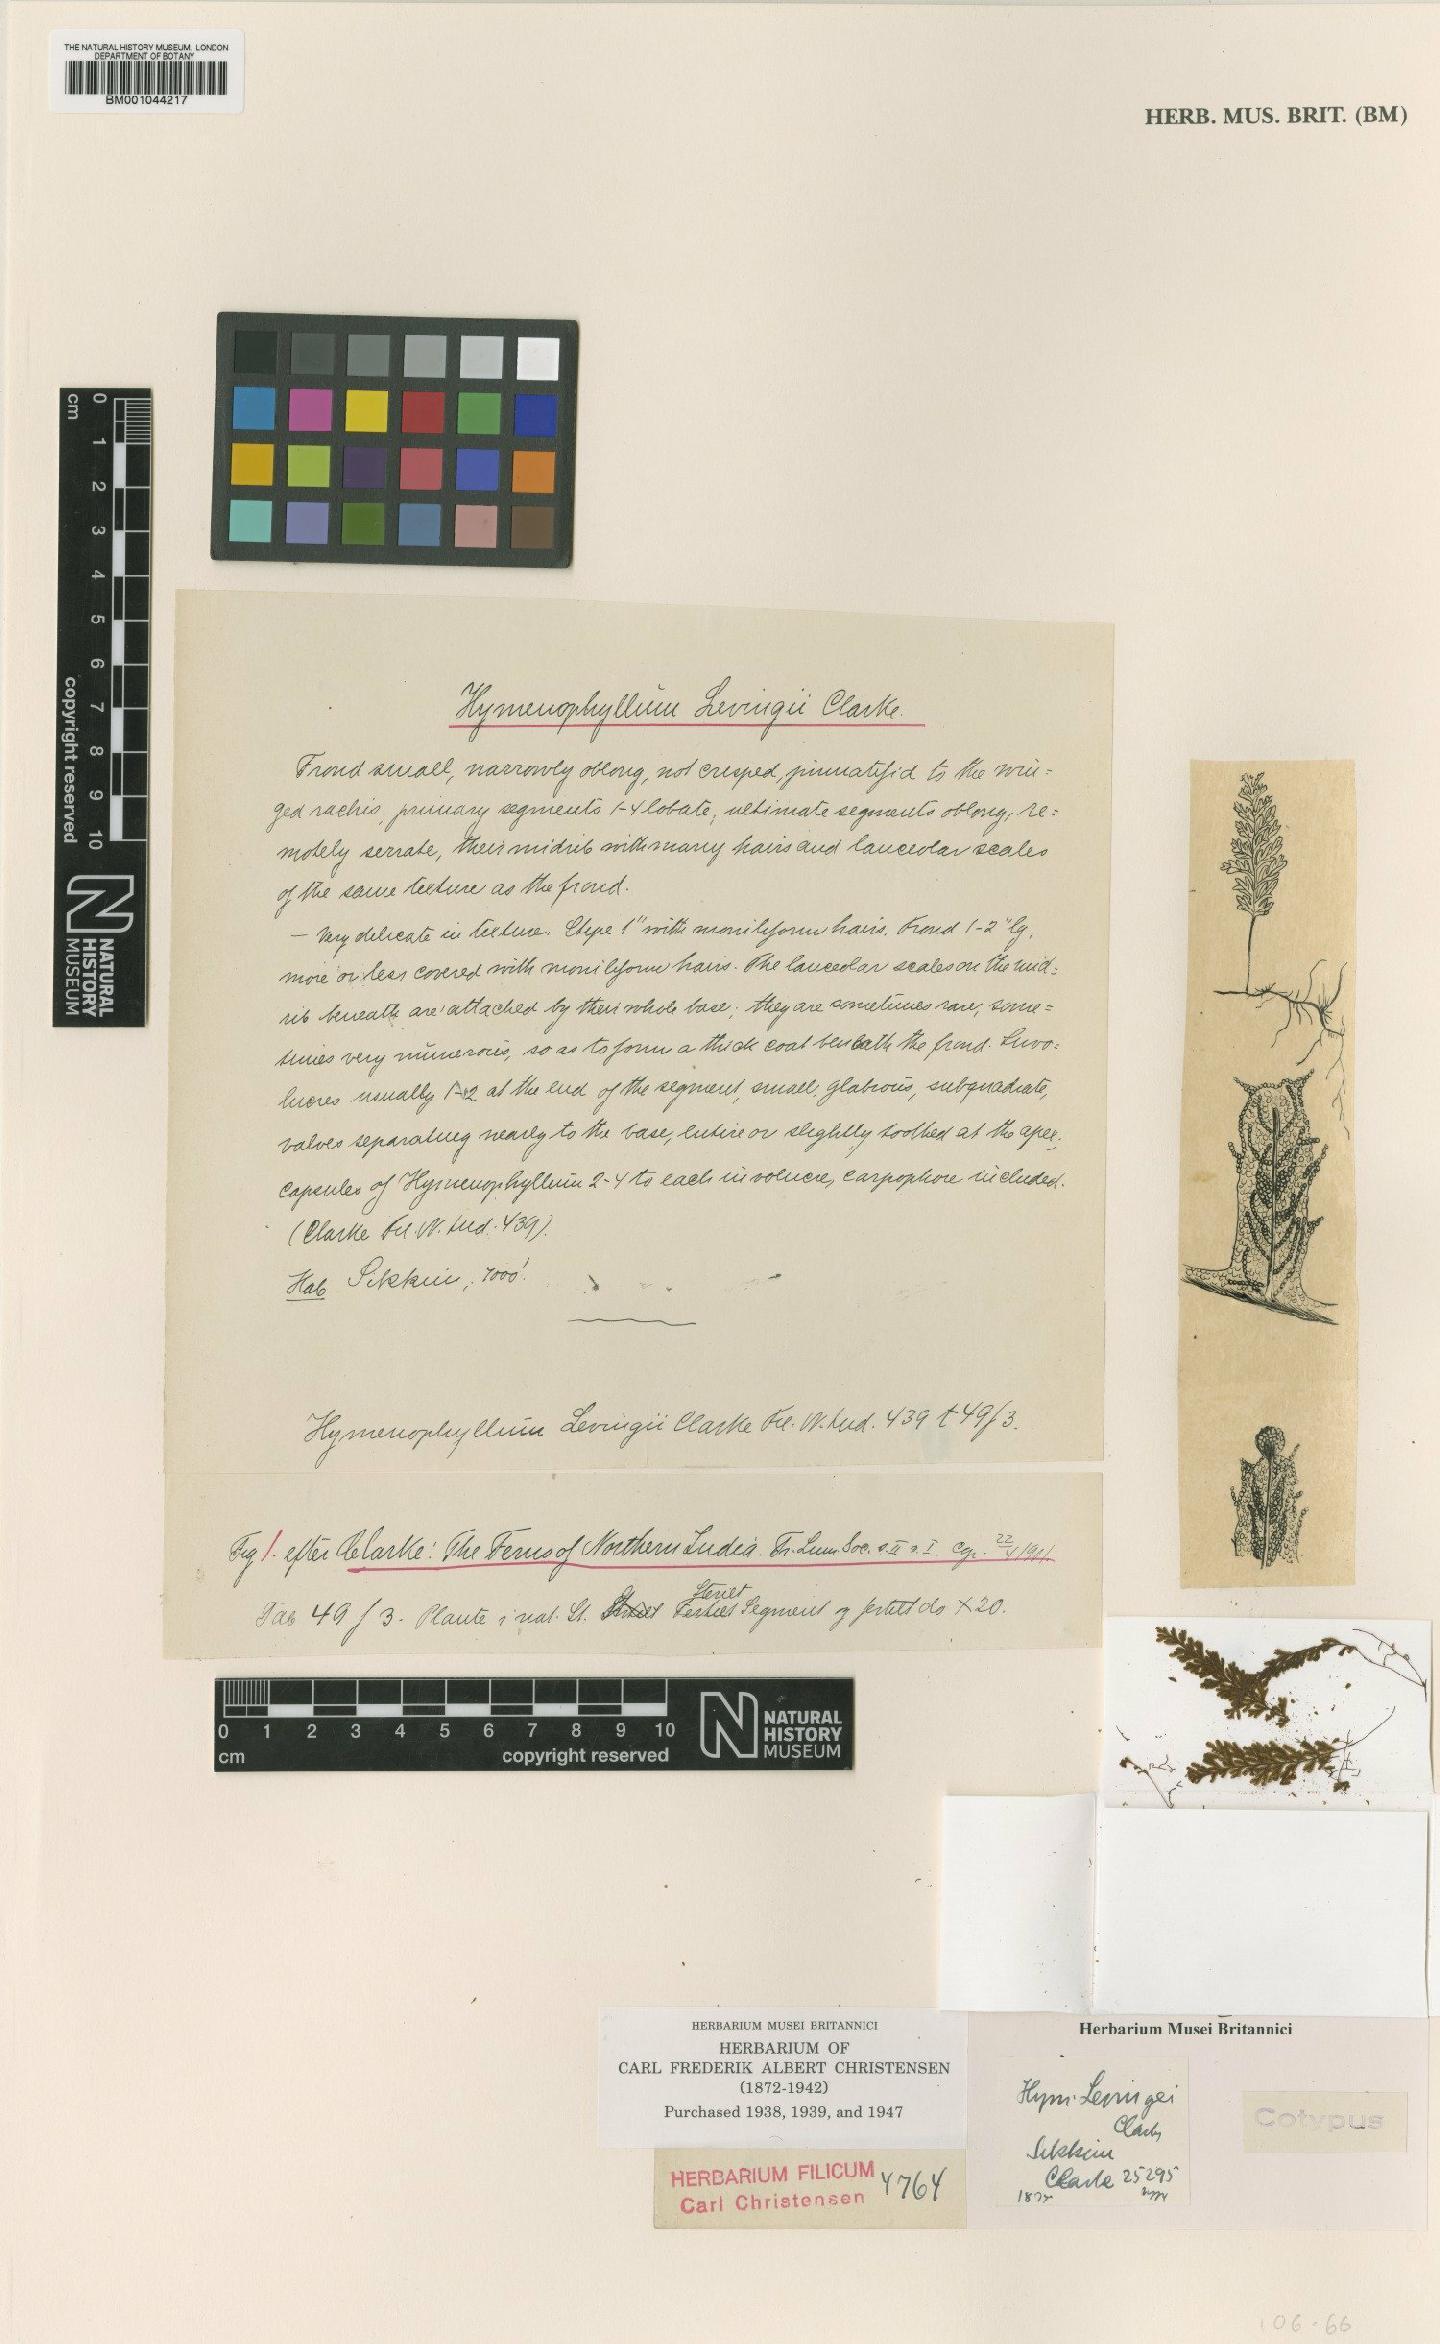 THE NATURAL HISTORY MUSEUM, LONDON
DEPARTMENT OF BOTANY
BM001044217
HERB. MUS. BRIT. (BM)
cm
0 1 2 3 4 5 6 7 8 9 10
copyright reserved
NATURAL
HISTORY
MUSEUM
Hymenophyllum Levingii Clarke.
Frond small, narrowly oblong, not crisped, pinnatifid to the win=
ged rachis, primary segments 1-4 lobate, ultimate segments oblong, re=
motely serrate, their midrib with many hairs and lanceolar scales
of the same texture as the frond.
— Very delicate in texture. Stipe 1" with moniliform hairs. Frond 1-2" lg,
more or less covered with moniliform hairs. The lanceolar scales on the mid=
rib beneath are attached by their whole base; they are sometimes rare, some=
times very numerous, so as to form a thick coat beneath the frond. Invo=
lucres usually 1-2 at the end of the segment, small, glabrous, subquadrate,
valves separating nearly to the base, entire or slightly toothed at the apex.
Capsules of Hymenophyllum 2-4 to each involucre, carpophore included.
(Clarke Fil. N. Ind. 439).
Hab Sikkim, 7000'.
Hymenophyllum Levingii Clarke Fil. N. Ind. 439 t 49 f 3.
Fig 1. efter Clarke: The Ferns of Northern India. Tr. Linn Soc. s. II v. I
Tab 49 f 3. Plante i nat. St. Sterilt Segment og fertilt do X20.
0 1 2 3 4 5 6 7 8 9 10
cm
copyright reserved
NATURAL
HISTORY
MUSEUM
HERBARIUM MUSEI BRITANNICI
HERBARIUM OF
CARL FREDERIK ALBERT CHRISTENSEN
(1872-1942)
Purchased 1938, 1939, and 1947
HERBARIUM FILICUM
Carl Christensen
4764
Herbarium Musei Britannici
Hym. Levingei
Clarke
Sikkim
Clarke 25295
Cotypus
106-66